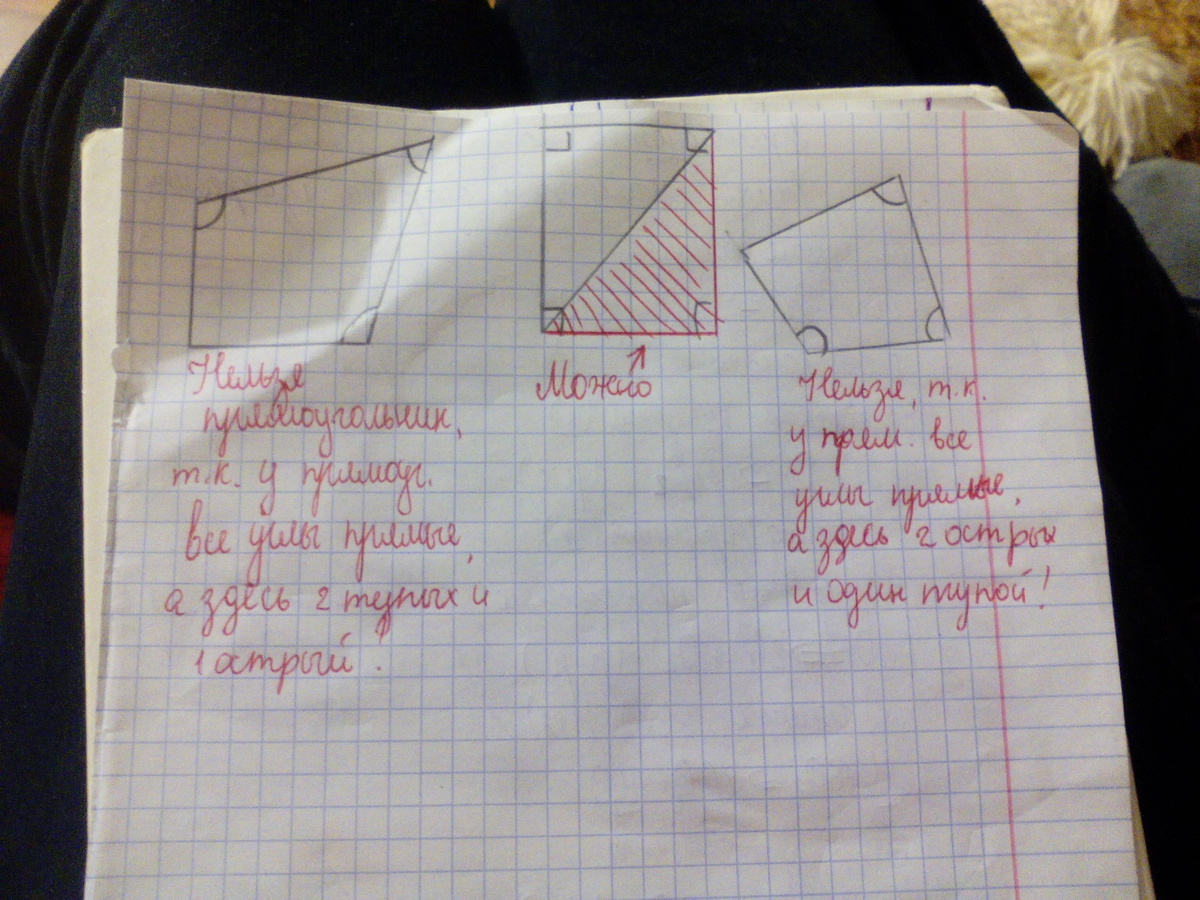 Нельзя
прямоугольник,
т.к. у прямоуг.
все углы прямые,
а здесь 2 тупых и
1 острый!
Можно
Нельзя, т.к.
у прям. все
углы прямые,
а здесь 2 острых
и один тупой!